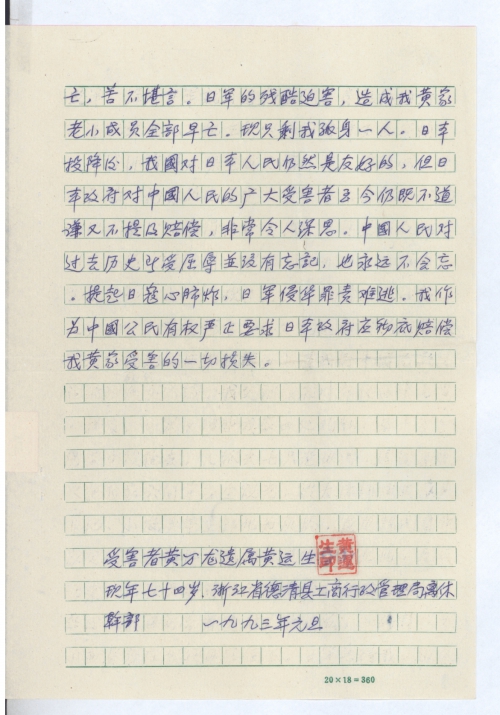 亡，苦不堪言。日军的残酷迫害，造成我黄家
老小成员全部早亡。现只剩我孤身一人。日本
投降后，我國对日本人民仍然是友好的，但日
本政府对中國人民的广大受害者至今仍既不道
谦又不提及赔偿，非常令人深思。中國人民对
过去历史所受屈辱並没有忘記，也永远不会忘
。提起日寇心肺炸，日軍侵华罪责难逃。我作
为中國公民有权严正要求日本政府应彻底赔偿
我黄家受害的一切损失。
受害者黄万龙遗属黄运生
黄運生印
现年七十四岁，浙江省德清县工商行政管理局离休
幹部 一九九三年元旦
20×18=360